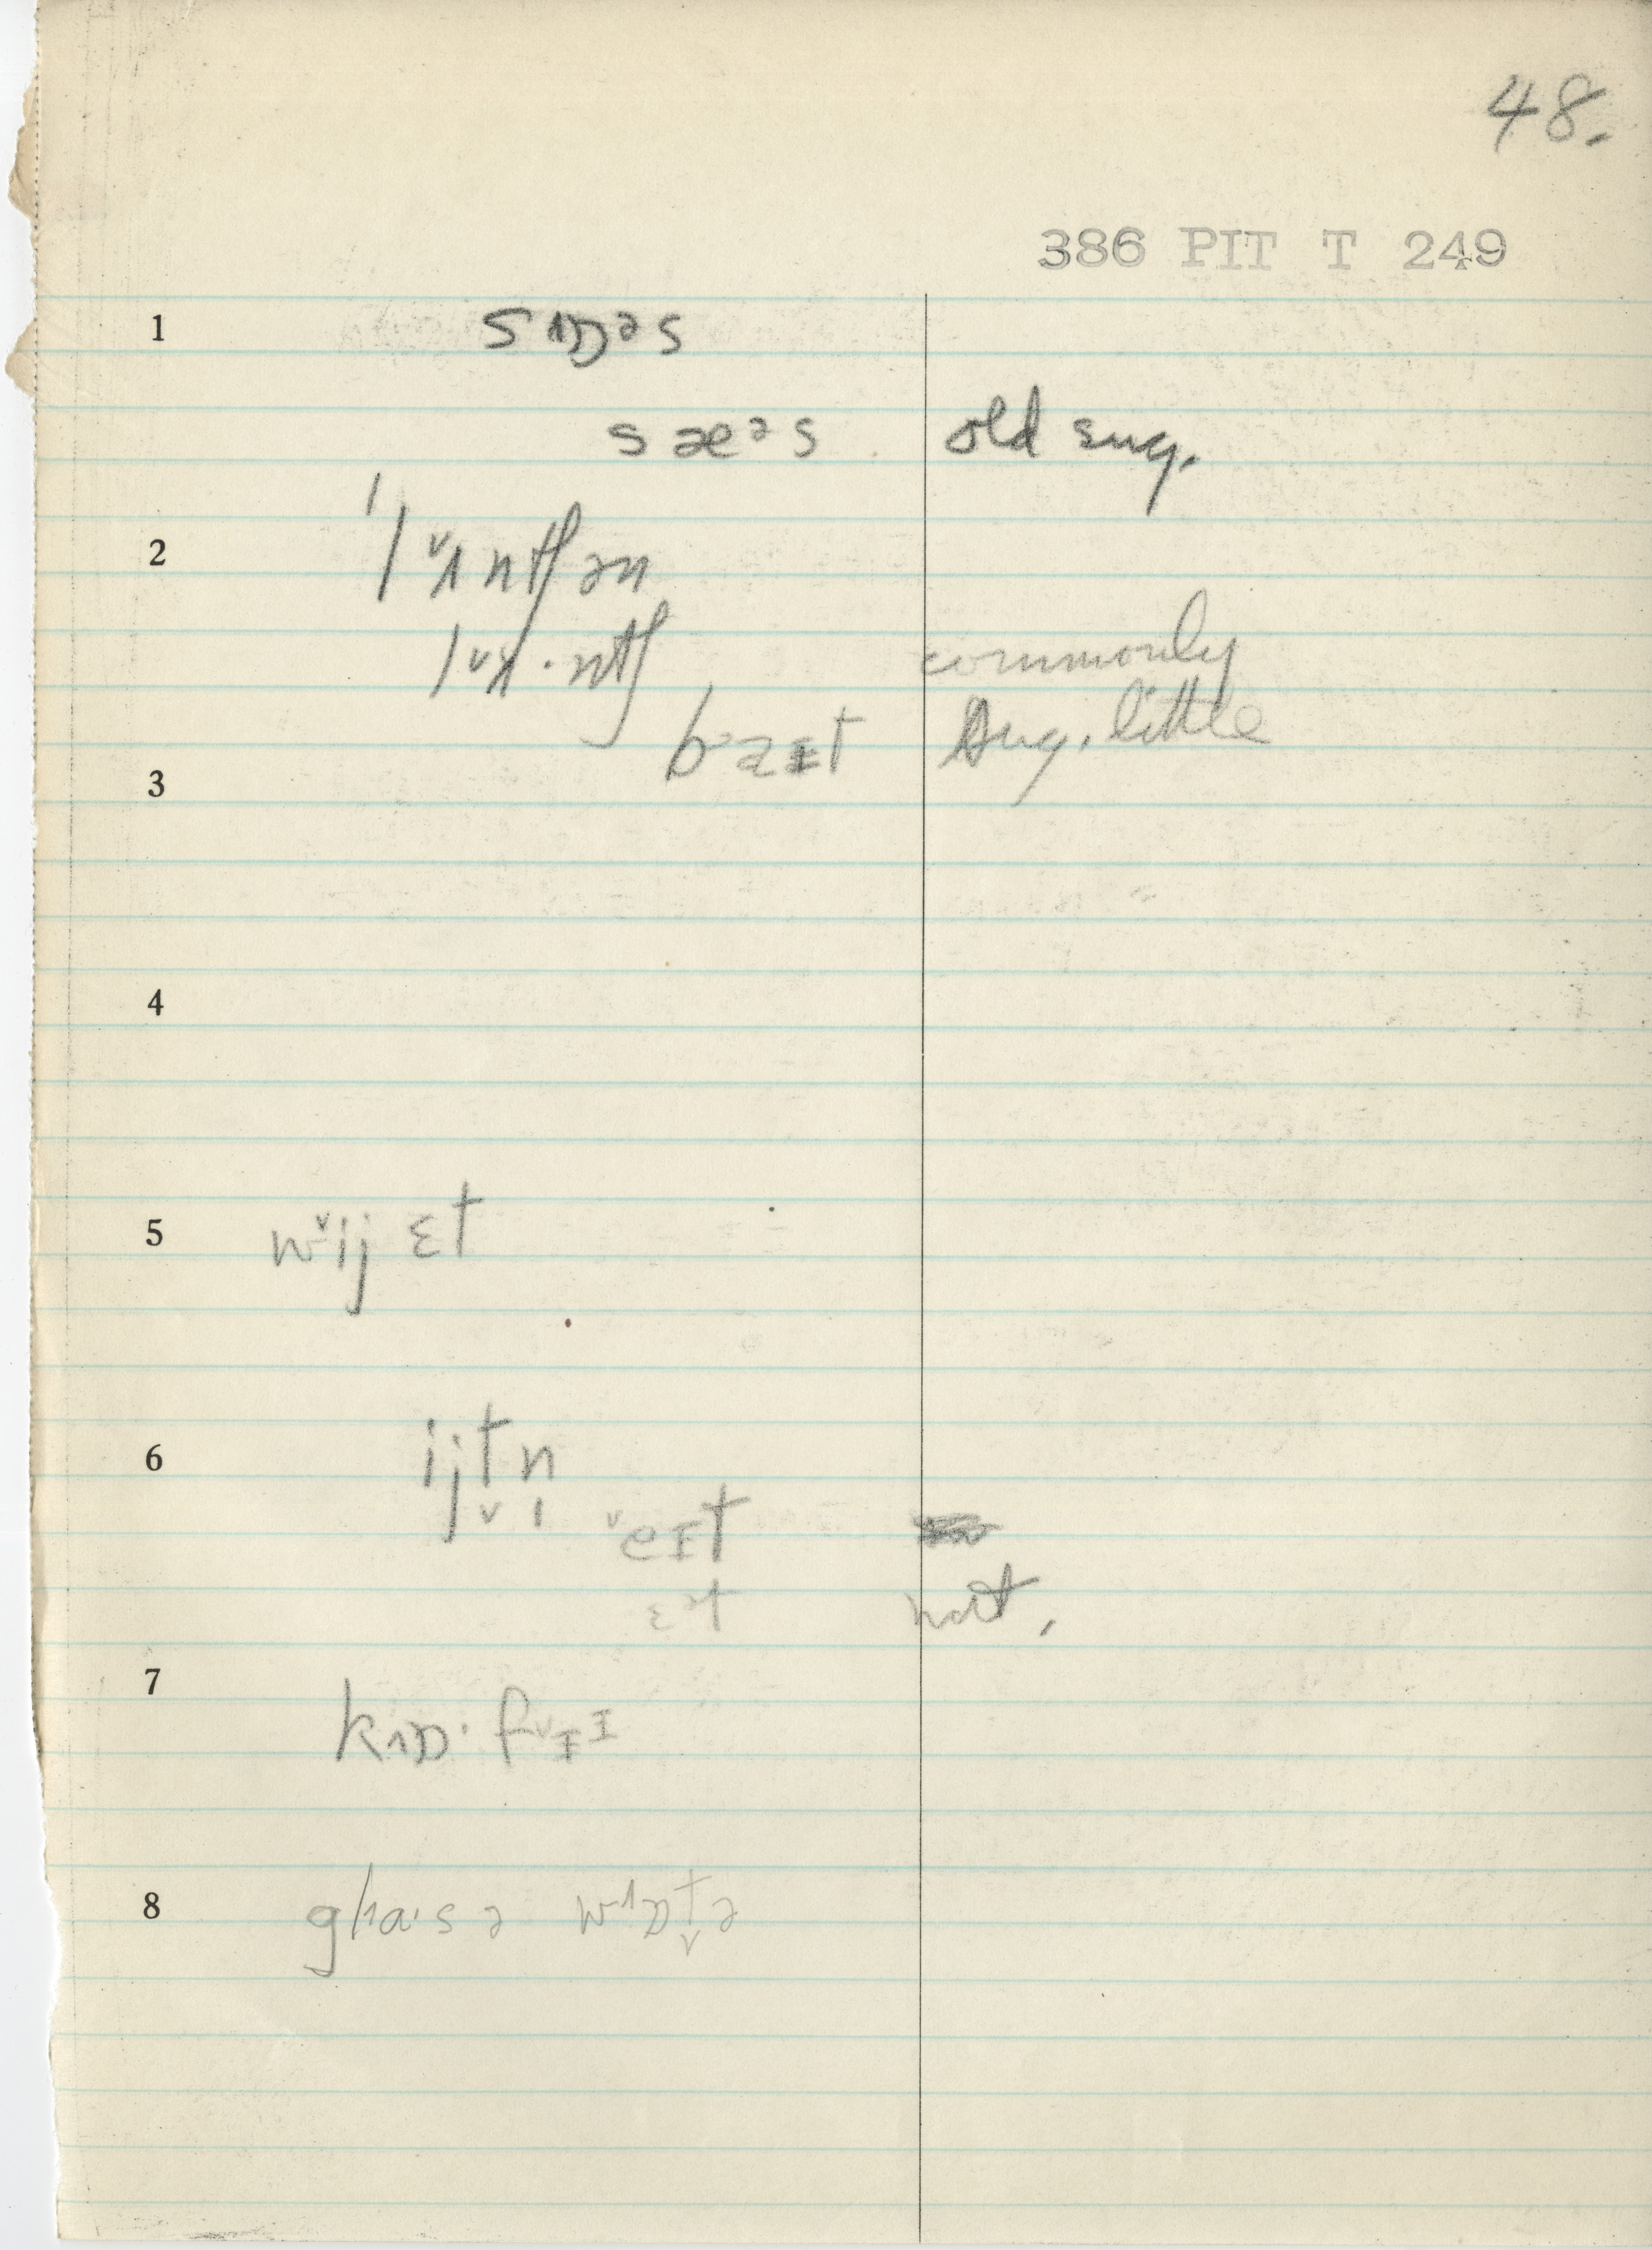 48.
386 PIT T 249
1 sɒəs
sæəs old sug.
2 lʌntʃən
lʌ·ntʃ commonly
baɪt sug. little
3
4
5 wij ɛt
6 ijtn
eɪt
ɛət nat.
7 kɒ·fɪɪ
8 gla·s ə wɒtə